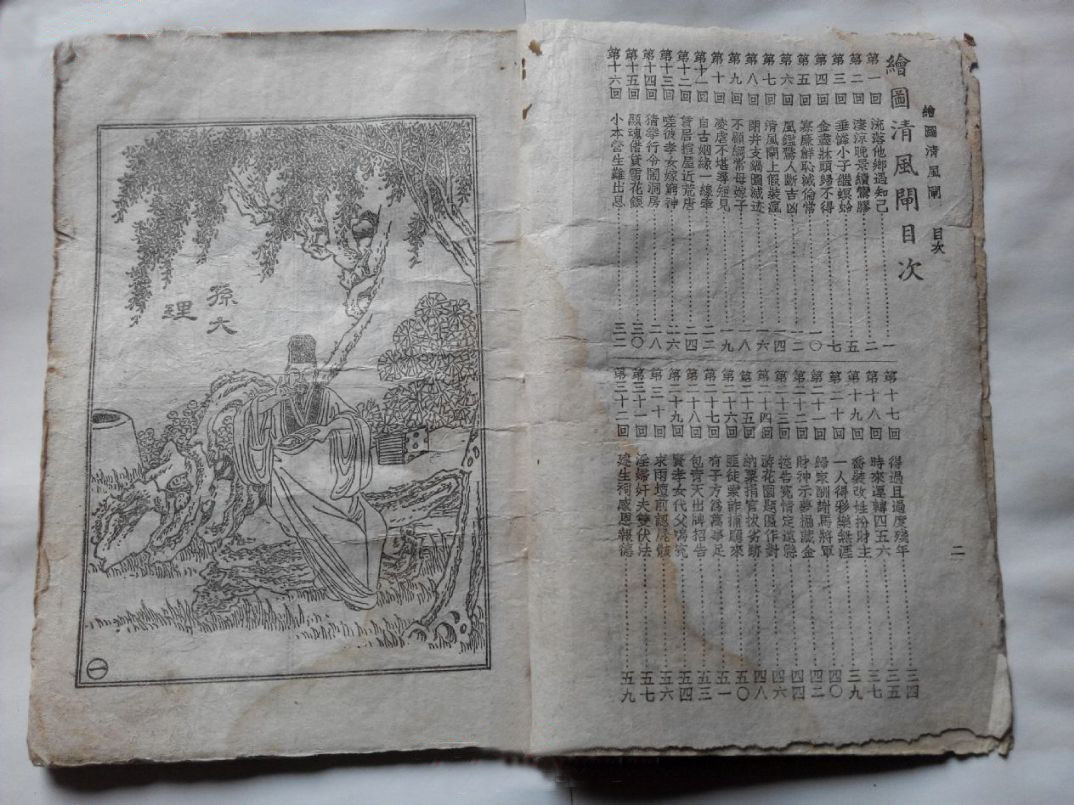 繪圖清風閘 目次 二
繪圖清風閘目次
第一回 流落他鄉遇知己……一
第二回 淒涼晚景續鸞膠……二
第三回 垂憐小子繼螟蛉……五
第四回 金盡牀頭歸不得……七
第五回 寡廉鮮恥滅倫常……一〇
第六回 風鑑驚人斷吉凶……一二
第七回 清風閘上假裝瘋……一四
第八回 開井支鍋圖滅迹……一六
第九回 不顧綱常母嫁子……一八
第十回 凌虐不堪尋短見……一九
第十一回 自古姻緣一線牽……二二
第十二回 賃居 屋近荒唐……二四
第十三回 嗟彼孝女嫁窮神……二六
第十四回 猜拳行令鬧洞房……二八
第十五回 顯魂借貸雪花銀……三〇
第十六回 小本營生難出息……三二
第十七回 得過且過度殘年……三四
第十八回 時來運轉四五六……三五
第十九回 喬裝改姓扮財主……三七
第二十回 一人得彩樂無涯……三九
第二十一回 歸家酬謝馬將軍……四〇
第二十二回 財神示夢掘藏金……四二
第二十三回 控告冤情定遠縣……四四
第二十四回 游花園題匾作對……四六
第二十五回 納粟捐官拔劣跡……四八
第二十六回 匪徒索詐捕頭來……五〇
第二十七回 有子方爲萬事足……五一
第二十八回 包青天出牌招告……五三
第二十九回 賢孝女代父鳴冤……五四
第三十回 求雨壇前認屍骸……五六
第三十一回 淫婦奸夫雙伏法……五七
第三十二回 建生祠感恩報德……五九
孫大
理
一